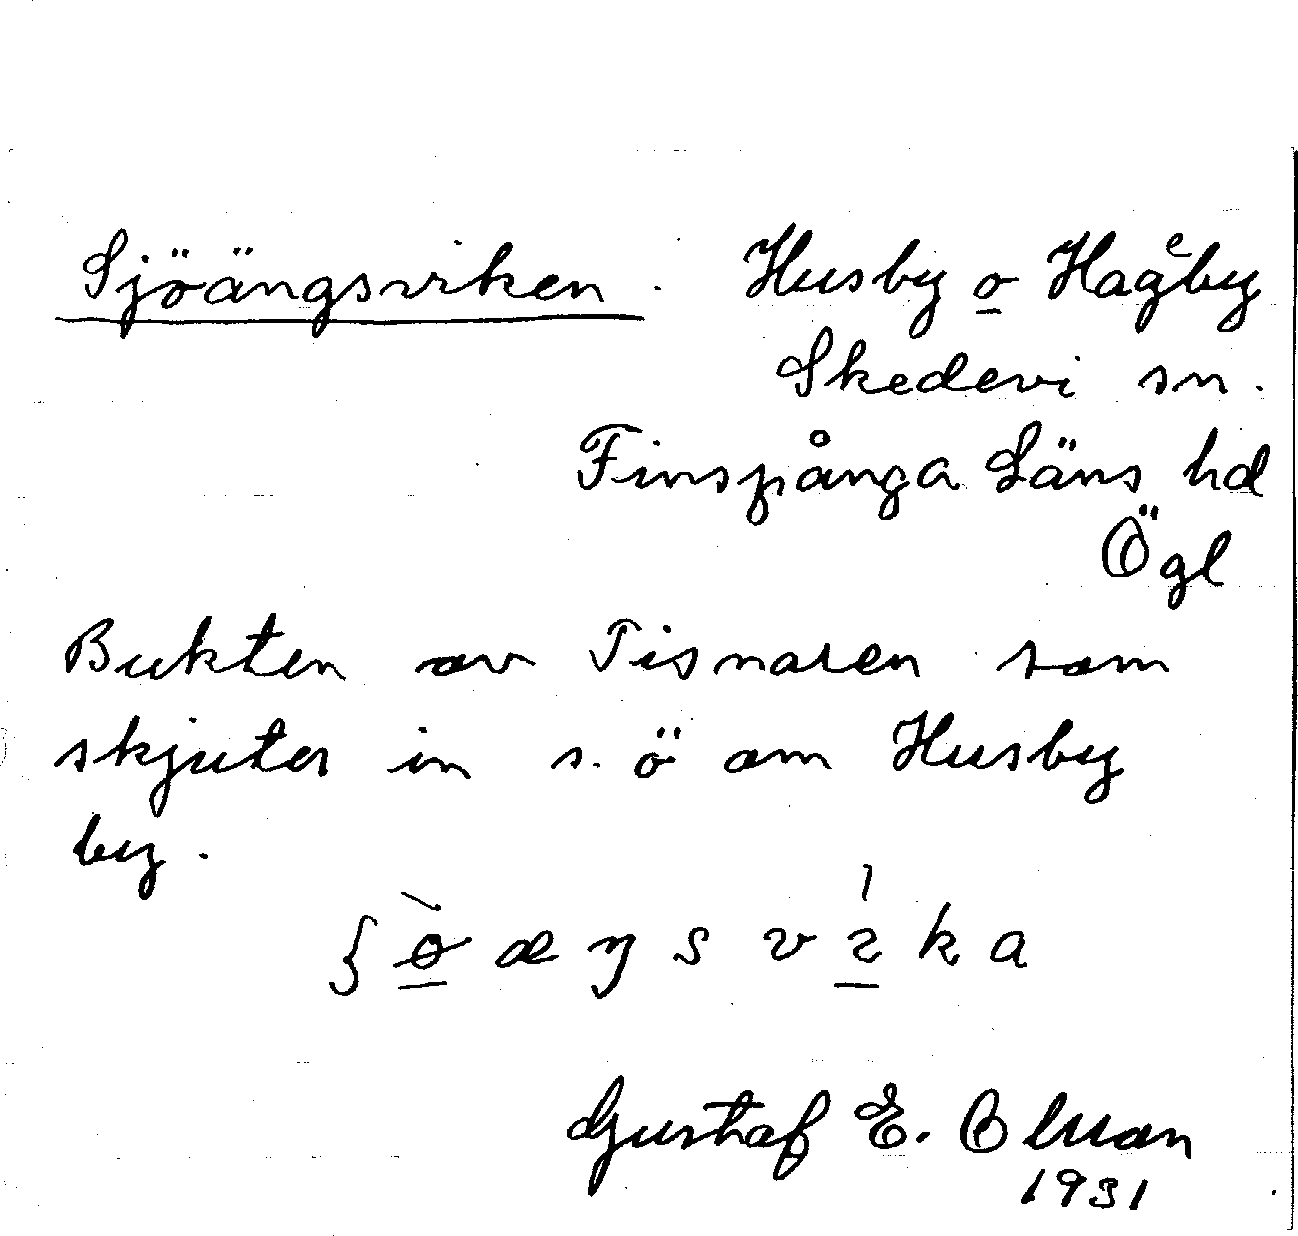 Sjöängsviken. Husby o Hageby
Skedevi sn.
Finspånga Läns hd
Ögl
Bukten av Tisnaren som
skjuter in s.ö om Husby
by.
Gustaf E.
1931